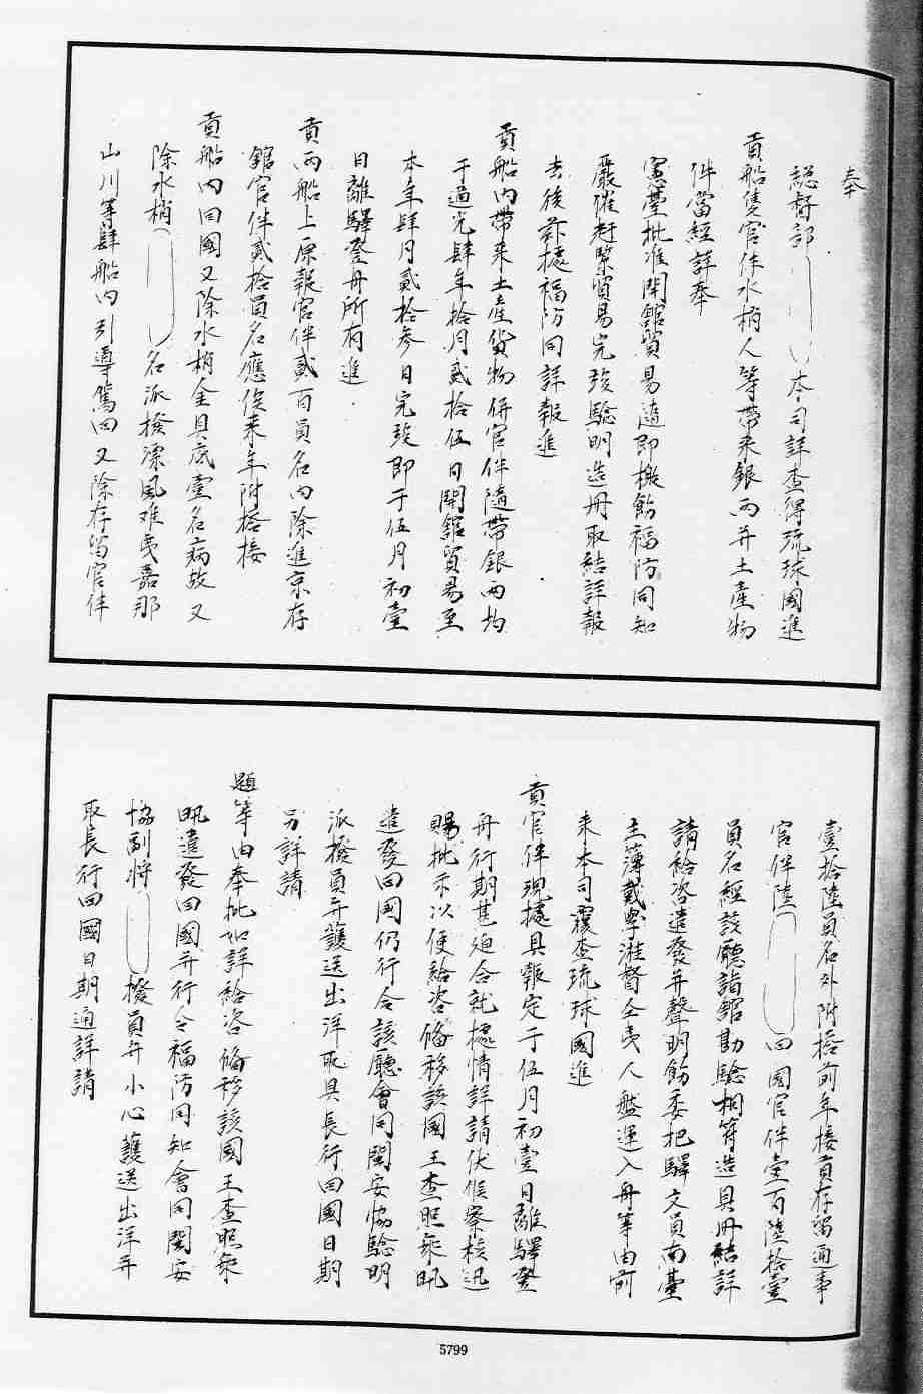 奉
総督部　本司詳查得琉球國進
貢船隻官伴水梢人等帶来銀兩并土產物
件當經詳奉
憲臺批准開館貿易遵即檄飭福防同知
嚴催赶緊貿易完竣驗明造冊取結詳報
去後茲據福防同詳報進
貢船內帶来土產貨物併官伴隨帶銀兩均
于道光肆年拾月貳拾伍日開館貿易至
本年肆月貳拾參日完竣即于伍月初壹
日離驛登舟所有進
貢兩船上原報官伴貳百員名內除進京存
館官伴貳拾員名應俟来年附搭接
貢船內回國又除水梢金具志壹名病故又
除水梢　名派撥漂風难夷嘉那
山川等肆船內引導駕回又除存留官伴
壹拾陸員名外附搭前年接貢存留通事
官伴陸　回國官伴壹百陸拾壹
員名經該廳詣館勘驗相符造具冊結詳
請給咨遣發并聲明飭委把驛文員南臺
主薄戴學淮督仝夷人盤運入舟等由前
来本司覆查琉球國進
貢官伴現據具報定于伍月初壹日離驛登
舟行期甚廹合就據情詳請伏候察核迅
賜批示以便給咨偹移該國王查照乘汛
遣發回國仍行令該廳會同閩安協驗明
派撥員弁護送出洋取具長行回國日期
另詳請
題等由奉批如詳給咨偹移該國王查照乘
汛遣發回國并行令福防同知會同閩安
協副將　撥員弁小心護送出洋并
取長行回國日期通詳請
5799